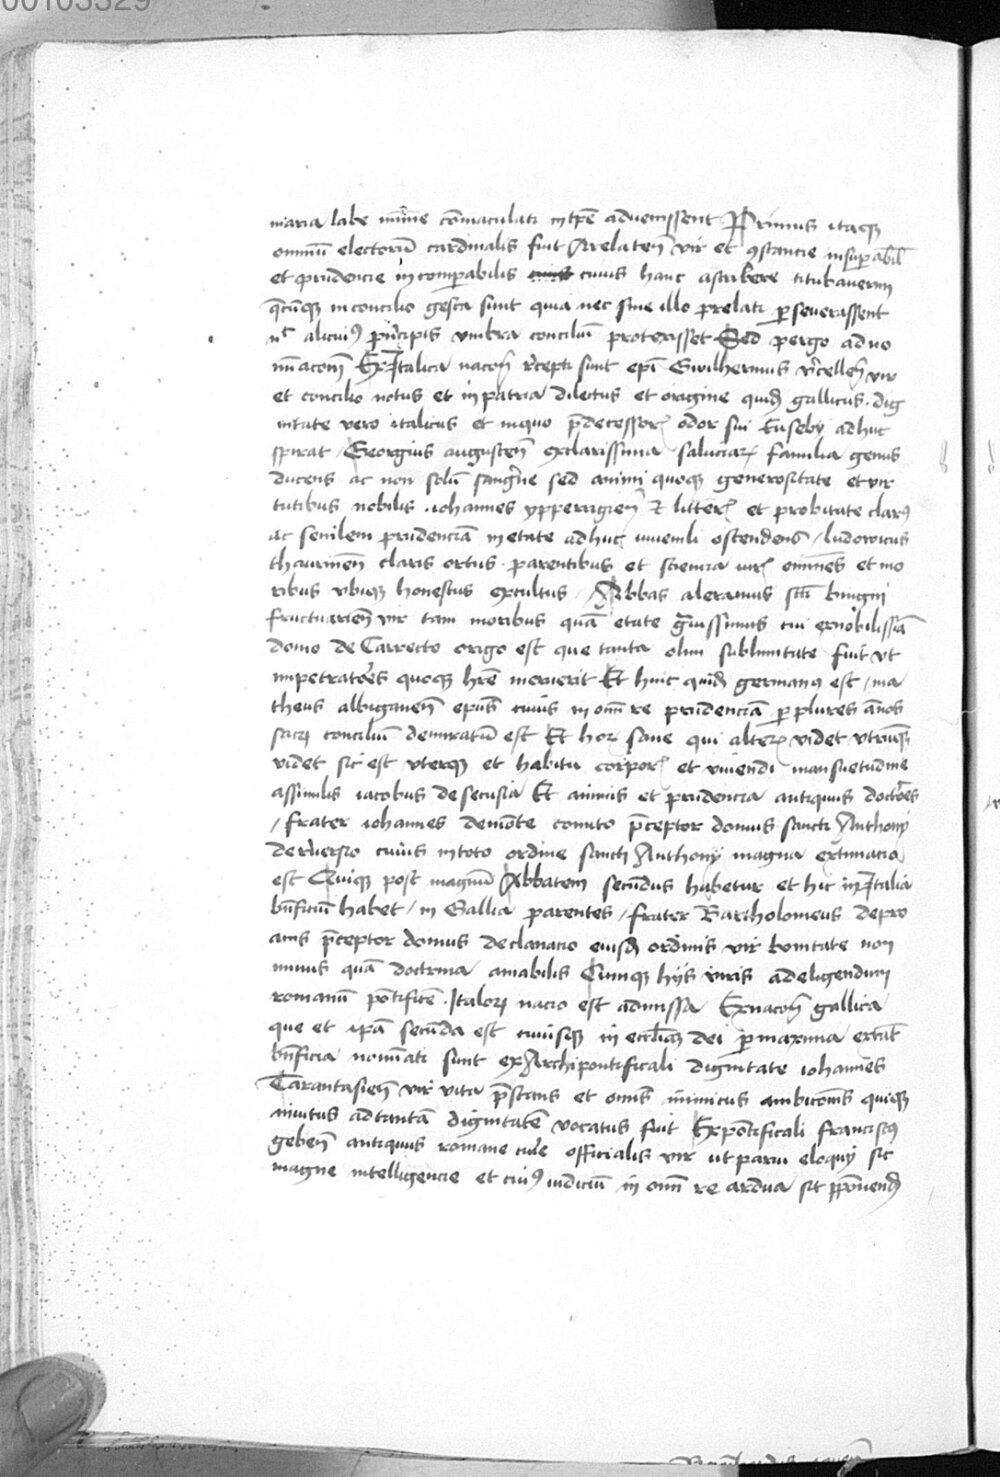 00103329
maria labe mīme cōmaculati intpē advenissent Primus itaqꝫ
omniū electorū cardinalis fuit Arelateñ vir et ꝯstancie insuꝑabil
et prudencie incomꝑabilis cuius hanc ascribere titubaverim
qͨcūqꝫ in concilio gesta sunt quia nec sine illo prelati ꝑseverassent
nͨ alicuiꝰ pͥncipis vmbra conciliū protexisset Sed pergo ad no
mīacoēm Ex Italica nacoñ rͨcepti sunt epī Gwilhermus vͨcelleñ vir
et concilio notus et in patria dilectus et origine quidē gallicus . dig
nitate vero italicus et in quo p̄decessorꝭ odor sui Eusebij adhuc
spirat / Georgius augusteñ ex clarissima saluciarꝭ familia genus
ducens ac non solū sangͥne sed animi quoqꝫ generositate et vir
tutibus nobilis . iohannes ypperregieñ & litterꝭ et probitate clarꝰ
ac senilem prudenciā in etate adhuc iuvenili ostendens / ludowicus
thaurineñ claris ortus parentibus et sciencia iurꝭ emīnēs et mo
ribus vbiqꝫ honestus excultus / Abbas aleramus sctī benigni
fructuarieñ vir tam moribus quā etate gͣvissimus cui ex nobilissiā
domo de Carrecto origo est que tanta olim sublimitate fuit vt
impetratoͤes quoqꝫ hrē meruerit Et huic quidē germanꝰ est / ma
theus albiganeñ epūs cuius in omī re prudenciā ꝑ plures ānos
sacrꝭ conciliū demiratū est Et hoꝝ sane qui alterꝭ videt vtrūqꝫ
videt sic est vterqꝫ et habitu corporꝭ et vivendi mansuetudine
assimilis iacobus de secusia Et animis et prudencia antiquis doctoͤes
/ frater iohannes demōte conuto p̄ceptor domus sancti Anthonij
de rͨverso cuius in toto ordine sancti Anthonij magna extimacio
est Quiqꝫ post magnū Abbatem secūdus habetur et hic in Italia
bn̄ficiū habet / in Gallia parentes / frater Bartholomeus de pro
anis p̄ceptor domus de clanatio eiusdē ordinis vir bonitate non
minus quā doctrina amabilis Cumqꝫ hijs viris ad eligendum
romanū pōtificē . Italorꝭ nacio est admissa Ex nacoñ gallica
que et ipā secūda est cuiusqꝫ in eccliīsqꝫ dei ꝑmaxima extāt
bn̄ficia noīati sunt ex Archipontificali dignitate iohannes
Tarantasieñ vir vita p̄stans et omīs inimicus ambicoīs quiqꝫ
invitus ad tantā dignitatē vocatus fuit Ex pōtificali franciscꝰ
gebeñ antiquus romane curͤe officialis vir ut parui eloquij sic
magne intelligencie et cuiꝰ iudiciū in omī re ardua sit p̄ponendū